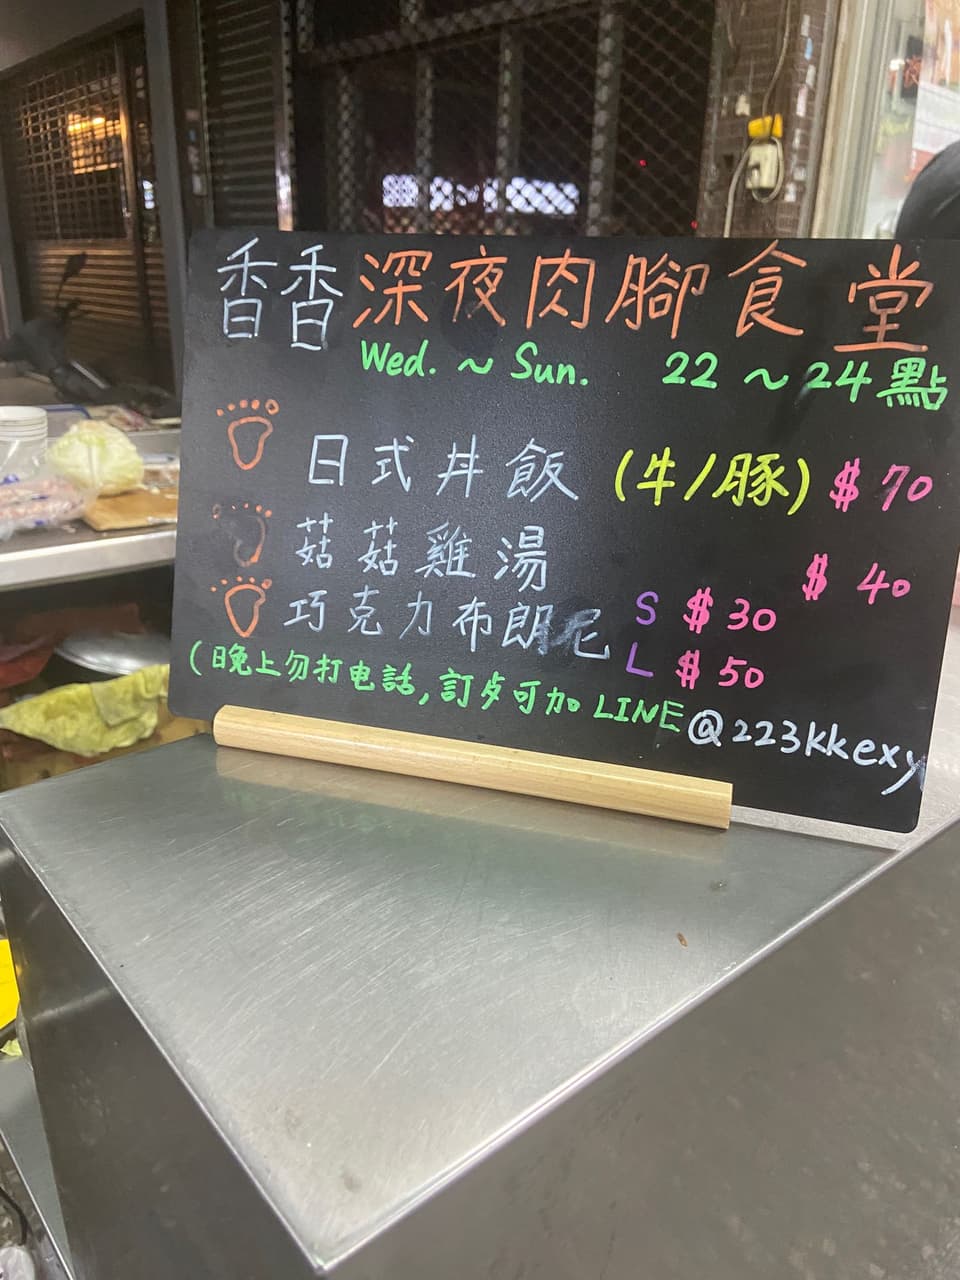 香香深夜肉腳食堂
Wed. ~ Sun. 22 ~ 24 點
日式丼飯 (牛/豚) $70
菇菇雞湯 $ 40
巧克力布朗尼 S $30
L $50
(晚上勿打电話,訂歺可加 LINE @223kkexy